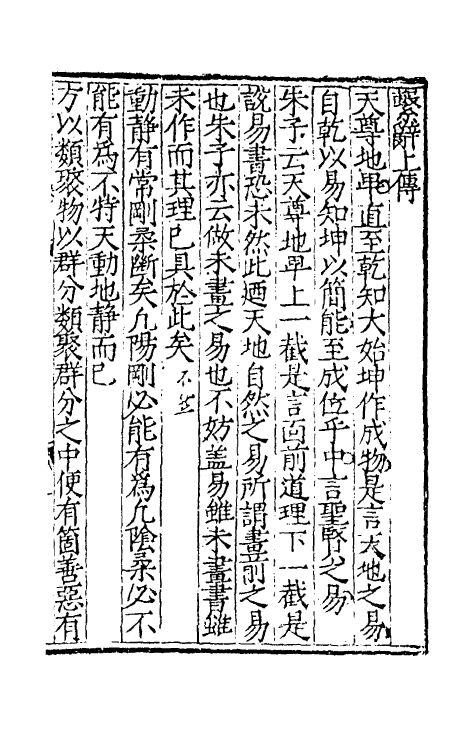 繫辭上傳
天尊地卑直至乾知大始坤作成物是言天地之易
自乾以易知坤以簡能至成位乎中言聖賢之易
朱子云天尊地卑上一截是言面前道理下一截是
說易書恐未然此迺天地自然之易所謂畫前之易
也朱子亦云做未畫之易也不妨盖易雖未畫書雖
未作而其理已具於此矣
動靜有常剛柔斷矣凢陽剛必能有為凢陰柔必不
能有為不特天動地静而已
方以類聚物以群分類聚群分之中便有箇善惡有